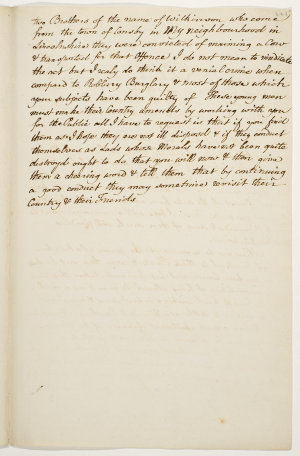 two Brothers of the name of Wilkinson, who come
from the town of in My neighbourhood in
Lincolnshire they were convicted of maiming a Cow
& transported for that Offence I do not mean to vindicate
the act but I realy do think it a venial crime when
compard to Robbery Burglary & most of those which
your subjects have been guilty of These young men
must make their Country amends by working with you
for the Public all I have to request is that if you find
them as I hope they are not ill disposd & if they conduct
themselves as Lads whose Morals have not been quite
destroyd ought to do that you will now & then give
them a chearing word & tell them that by continuing
a good conduct they may sometime revisit their
Country & their Friends